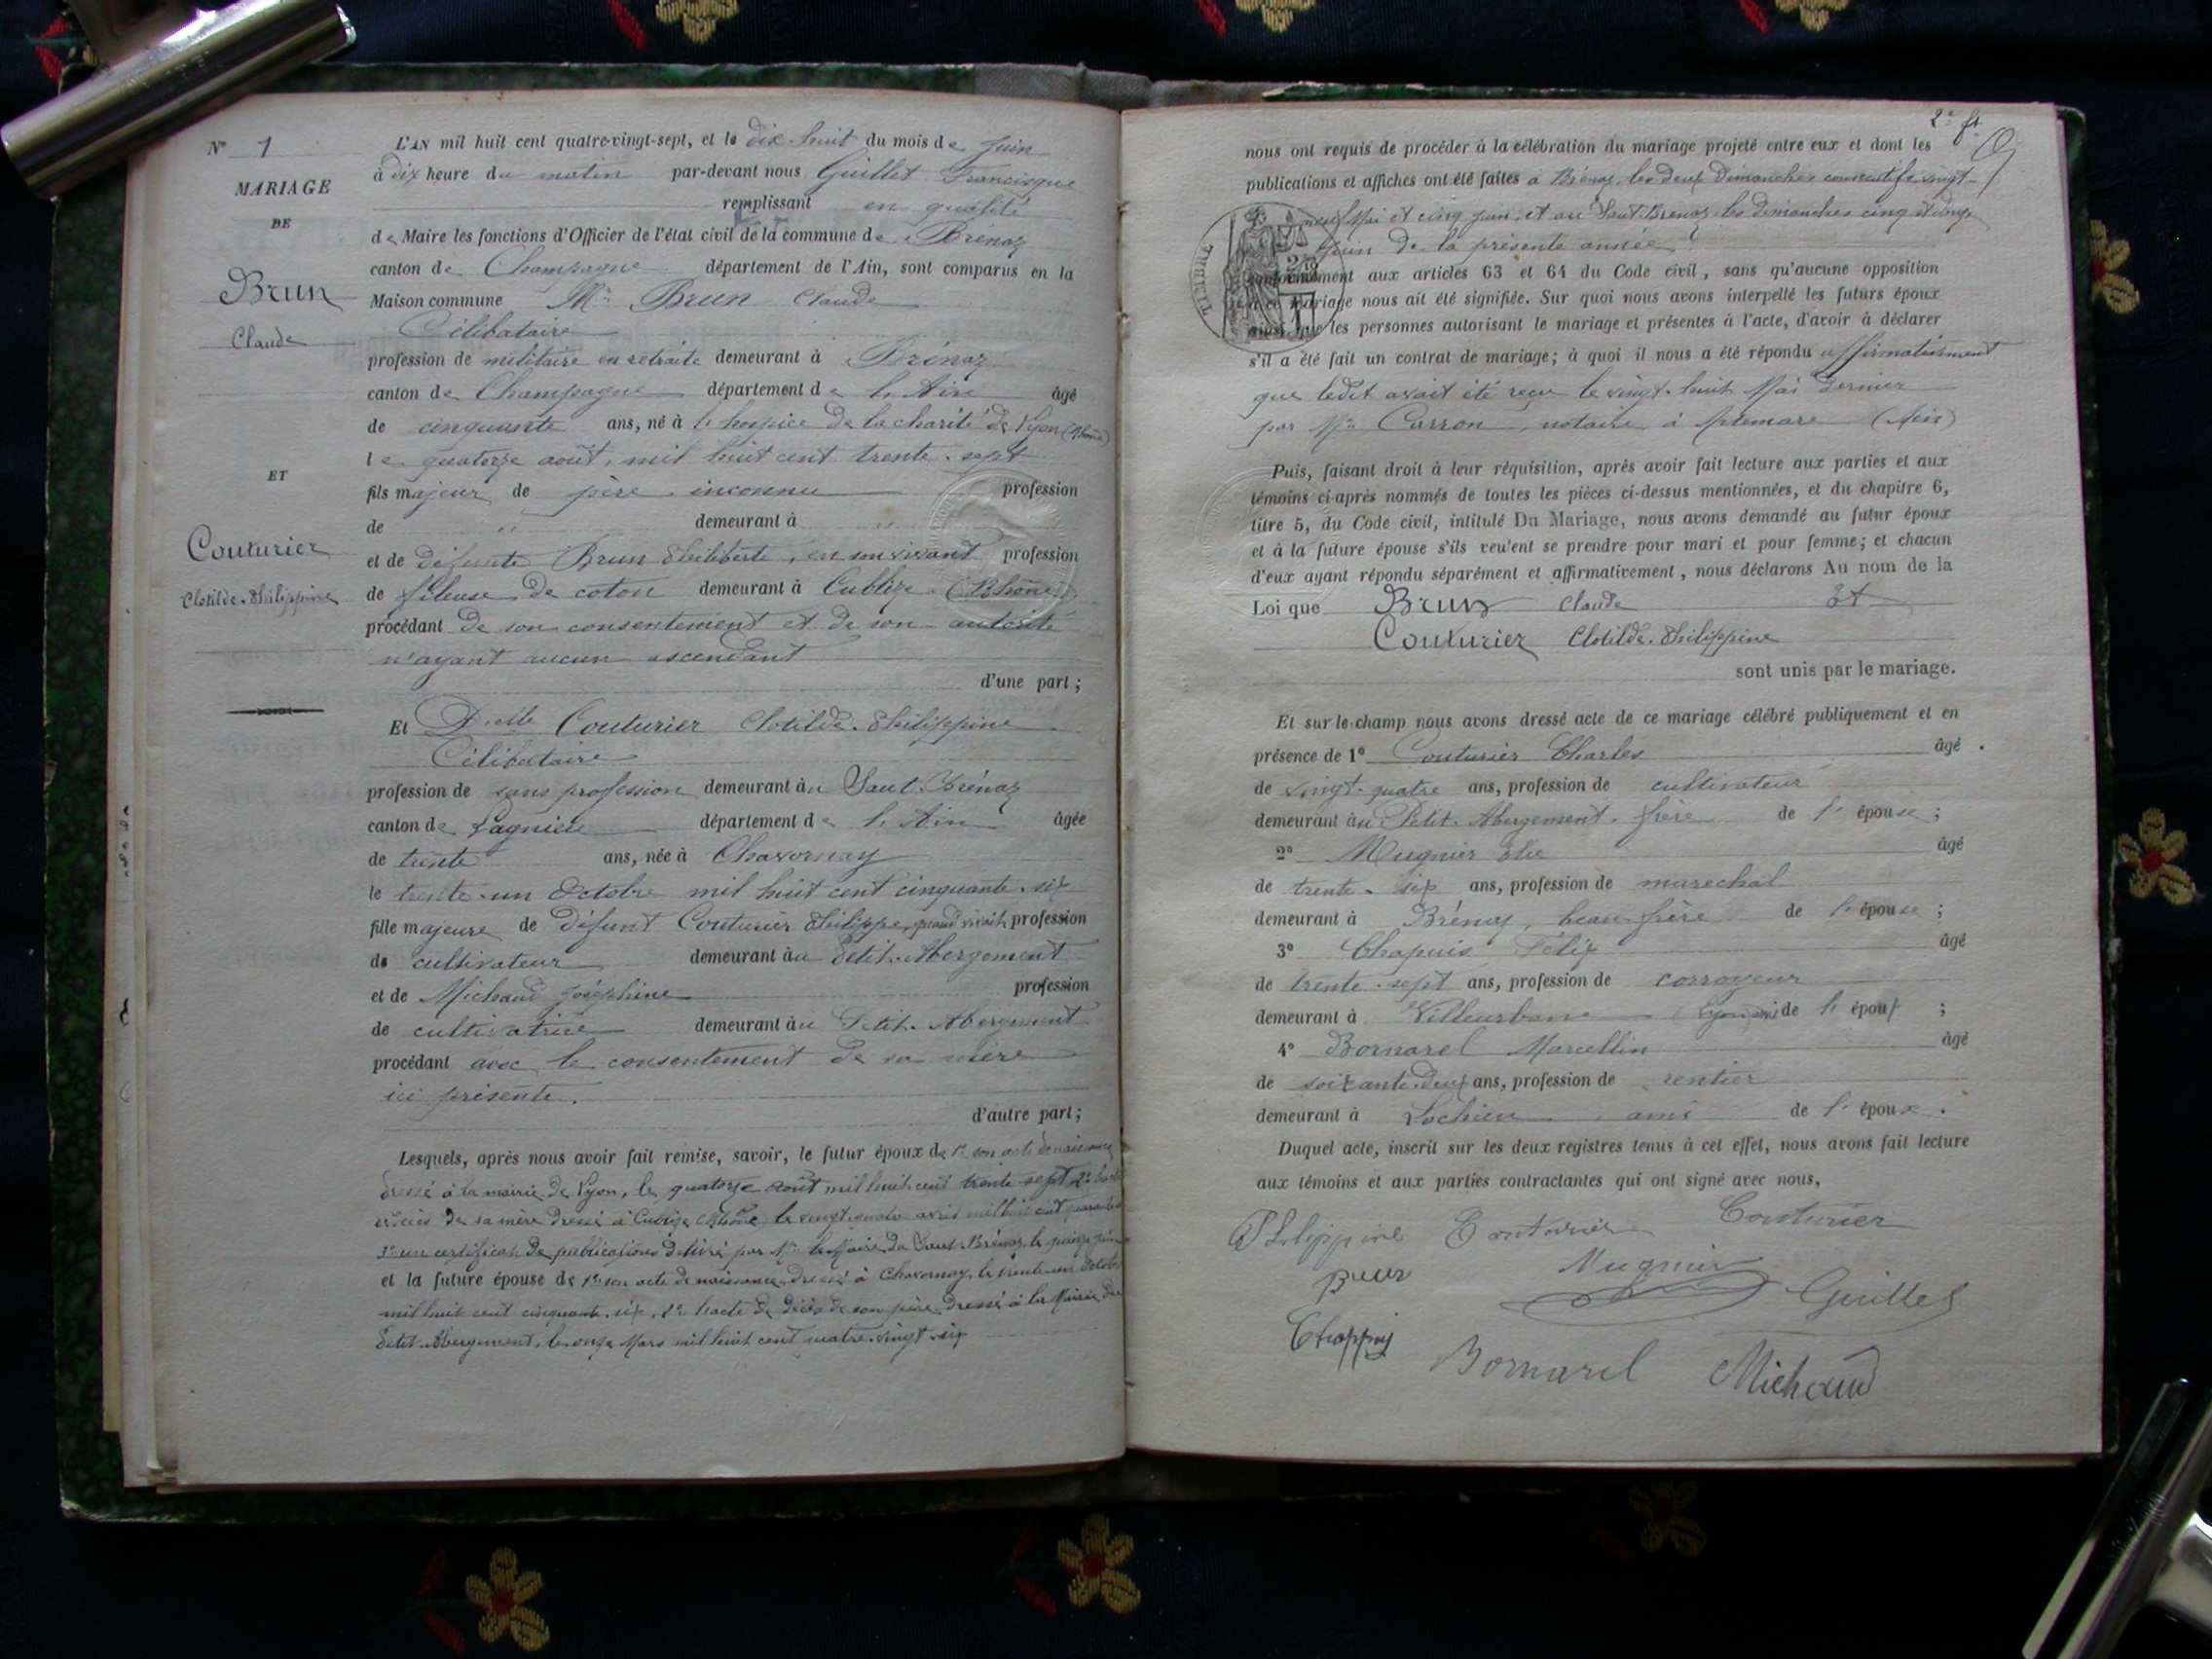 N° 1
MARIAGE
DE
Brun
Claude
ET
Couturier
Clotilde Philippine
L'AN mil huit cent quatre-vingt-sept, et le dix-huit du mois de Juin
à dix heure du matin par-devant nous Guillet Francisque
remplissant en qualité
de Maire les fonctions d'Officier de l'état civil de la commune de Brénaz
canton de Champagne département de l'Ain, sont comparus en la
Maison commune Mr Brun Claude
Célibataire
profession de militaire en retraite demeurant à Brénaz
canton de Champagne département de l'Ain âgé
de cinquante ans, né à l'hospice de la charité de Lyon (Rhône)
le quatorze août, mil huit cent trente-sept
fils majeur de père inconnu profession
de " demeurant à "
et de défunte Brun Philiberte, en son vivant profession
de fileuse de coton demeurant à Cublize (Rhône)
procédant de son consentement et de son autorité
n'ayant aucun ascendant
d'une part;
Et Delle Couturier Clotilde-Philippine
Célibataire
profession de sans profession demeurant au Sault-Brénaz
canton de Lagnieu département de l'Ain âgée
de trente ans, née à Chavornay
le trente-un Octobre mil huit cent cinquante-six
fille majeure de défunt Couturier Philippe, quand vivait profession
de cultivateur demeurant au Petit-Abergement
et de Michaud Joséphine profession
de cultivatrice demeurant au Petit-Abergement
procédant avec le consentement de sa mère
ici présente.
d'autre part;
Lesquels, après nous avoir fait remise, savoir, le futur époux de 1° son acte de naissance
dressé à la mairie de Lyon, le quatorze août mil huit cent trente-sept, 2°
décès de sa mère dressé à Cublize (Rhône) le vingt avril mil huit cent
3° un certificat de publications délivré par Mr le Maire du Sault-Brénaz le quinze juin
et la future épouse de 1° son acte de naissance dressé à Chavornay, le trente-un Octobre
mil huit cent cinquante-six, 2° l'acte de décès de son père dressé à la Mairie du
Petit-Abergement, le onze Mars mil huit cent quatre-vingt-six
2e ft
nous ont requis de procéder à la célébration du mariage projeté entre eux et dont les
publications et affiches ont été faites à Brénaz, les deux Dimanches consécutifs vingt-
neuf Mai et cinq juin, et au Sault-Brénaz les dimanches cinq et douze
Juin de la présente année
TIMBRE
conformément aux articles 63 et 64 du Code civil, sans qu'aucune opposition
à ce mariage nous ait été signifiée. Sur quoi nous avons interpellé les futurs époux
ainsi que les personnes autorisant le mariage et présentes à l'acte, d'avoir à déclarer
s'il a été fait un contrat de mariage; à quoi il nous a été répondu affirmativement
que ledit avait été reçu le vingt-huit Mai dernier
par Me Carron, notaire à Artemare (Ain)
Puis, faisant droit à leur réquisition, après avoir fait lecture aux parties et aux
témoins ci-après nommés de toutes les pièces ci-dessus mentionnées, et du chapitre 6,
titre 5, du Code civil, intitulé Du Mariage, nous avons demandé au futur époux
et à la future épouse s'ils veulent se prendre pour mari et pour femme; et chacun
d'eux ayant répondu séparément et affirmativement, nous déclarons Au nom de la
Loi que Brun Claude Et
Couturier Clotilde-Philippine
sont unis par le mariage.
Et sur-le-champ nous avons dressé acte de ce mariage célébré publiquement et en
présence de 1° Couturier Charles âgé
de vingt-quatre ans, profession de cultivateur
demeurant au Petit-Abergement, frère de l'épouse;
2° Mugnier Elie âgé
de trente-six ans, profession de marechal
demeurant à Brénaz, beau-frère de l'épouse;
3° Chapuis Félix âgé
de trente-sept ans, profession de corroyeur
demeurant à Villeurbane de l'époux;
4° Bornarel Marcellin âgé
de soixante-deux ans, profession de rentier
demeurant à Lochieu ami de l'époux.
Duquel acte, inscrit sur les deux registres tenus à cet effet, nous avons fait lecture
aux témoins et aux parties contractantes qui ont signé avec nous,
Philippine Couturier Couturier
Brun Mugnier Guillet
Chappuy Bornarel Michaud